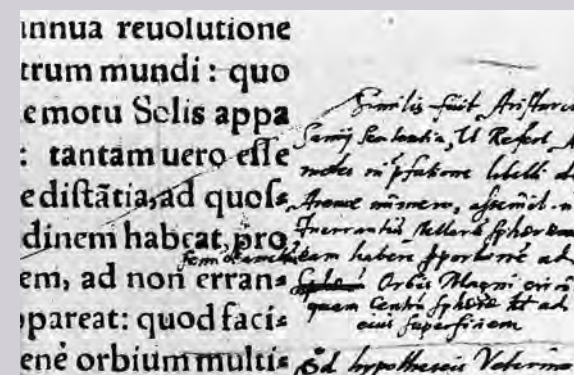 annua reuolutione
trum mundi : quo
emotu Solis appa
: tantam uero esse
e distãtia, ad quos⸗
dinem habeat, pro
em, ad non erran⸗
ppareat: quod faci⸗
enè orbium multi⸗
Similis fuit Aristarc
Samij Sententia, Ut Refert A
libelli
Arenae numero,
Inerrantiū stellarū sphaeram
semidiametri eam habere pportionē ad
Orbis Magni
quam Centrū sphaerae ad
eius superficiem
Sed hypothesis Veterum